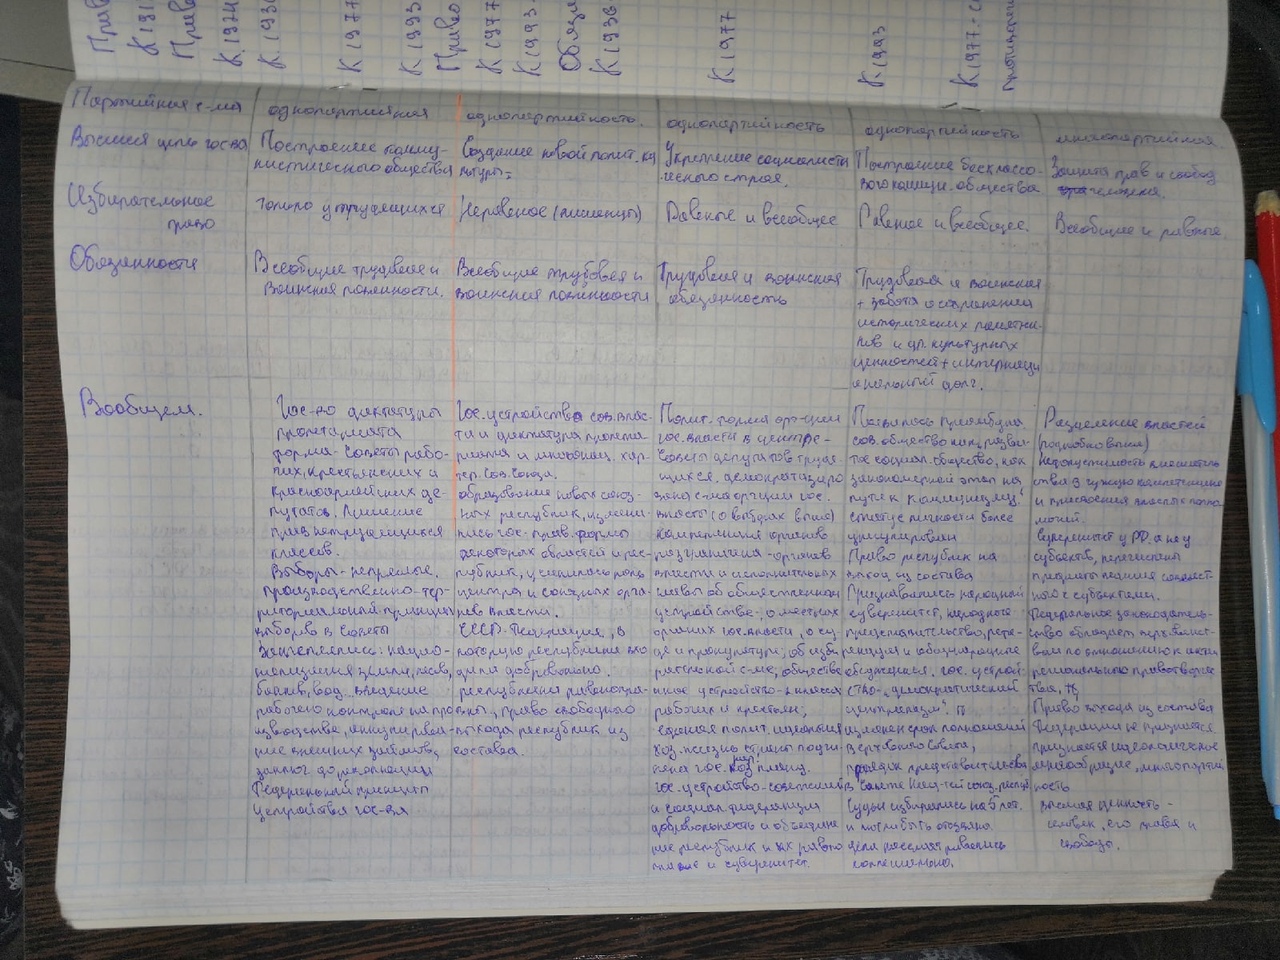 К 1977
К 1993
К 1977
К 1993
К 1936
К 1977
К 1993
Партийная с-ма
однопартийная
однопартийность.
однопартийность
однопартийность
многопартийная.
Высшая цель гос-ва
Построение комму-
нистического общества
Создание новой полит.
Укрепление социалисти
ческого строя.
Построение бесклассо-
вого коммун. общества
Защита прав и свобод
человека.
Избирательное
право
только у трудящихся
Неравное (лишенцы)
Равное и всеобщее
Равное и всеобщее.
Всеобщее и равное.
Обязанности
Всеобщие трудовая и
воинская повинности.
Всеобщие трудовая и
воинская повинности
Трудовая и воинская
обязанность
Трудовая и воинская
+ забота о сохранении
исторических памятни-
ков и др. культурных
ценностей + интернаци
ональный долг.
Вообщем.
Гос-во диктатуры
пролетариата
форма - Советы рабо-
чих, крестьянских и
красноармейских де-
путатов. Лишение
прав нетрудящихся
классов.
Выборы - непрямые.
производственно-тер-
риториальный принцип
выборов в Советы
Закрепление: нацио-
нализация земли, лесов,
банков, вод, введение
рабочего контроля на про
изводстве, аннулирова-
ние внешних займов,
Федеральный принцип
устройства гос-ва
Гос. устройство сов. влас-
ти и диктатура пролета-
риата и многонац. хар-
тер Сов. Союза.
образование новых союз-
ных республик, измени-
лись гос-прав. формы
некоторых областей и рес-
публик, усилилась роль
центра и союзных орга-
нов власти.
СССР - Федерация, в
которую республики вхо
дили добровольно.
республики равноправ-
ны, право свободного
выхода республик из
состава.
Полит. форма орг-ции
гос. власти в центре -
Советы депутатов трудя-
щихся. демократизиро
вана с-ма орг-ции гос.
власти (о выборах выше)
компетенция органов
разграничена - органов
власти и исполнительных
главы об общественном
устройстве; о местных
органах гос. власти, о су-
де и прокуратуре; об изби
рательной с-ме; обществе
нное устройство - 2 класса
рабочих и крестьян;
единая полит. идеология
хоз. жизнь страны подчи
нена гос. плану.
гос. устройство - советская
и социал. федерация
добровольность и объедине
ние республик и их равно
правие и суверенитет.
Появилась преамбула
сов. общество назв. разви-
тое социал. общество, как
закономерный этап на
пути к коммунизму!
статус личности более
урегулирован
Право республик на
выход из состава
Признавались народный
суверенитет, народное
представительство, рефе-
рендум и общенародные
обсуждения. гос. устрой-
ство - „демократический
централизм".
изменен срок полномочий
Верховного Совета,
порядок представительства
в Совете Нац-тей союз. респуб
Судьи избирались на 5 лет.
и могли быть отозваны.
дела рассматривались
коллегиально.
Разделение властей
(подробно выше)
недопустимость вмешатель
ства в чужую компетенцию
и присвоения властных полно
мочий.
суверенитет у РФ, а не у
субъектов, перечислены
предметы ведения совмест-
ного с субъектами.
Федеральное законодатель-
ство обладает первенст-
вом по отношению к акту
регионального правотворче
ства,
Право выхода из состава
Федерации не признается.
признается идеологическое
многообразие, многопартий
ность
высшая ценность -
человек, его права и
свободы.